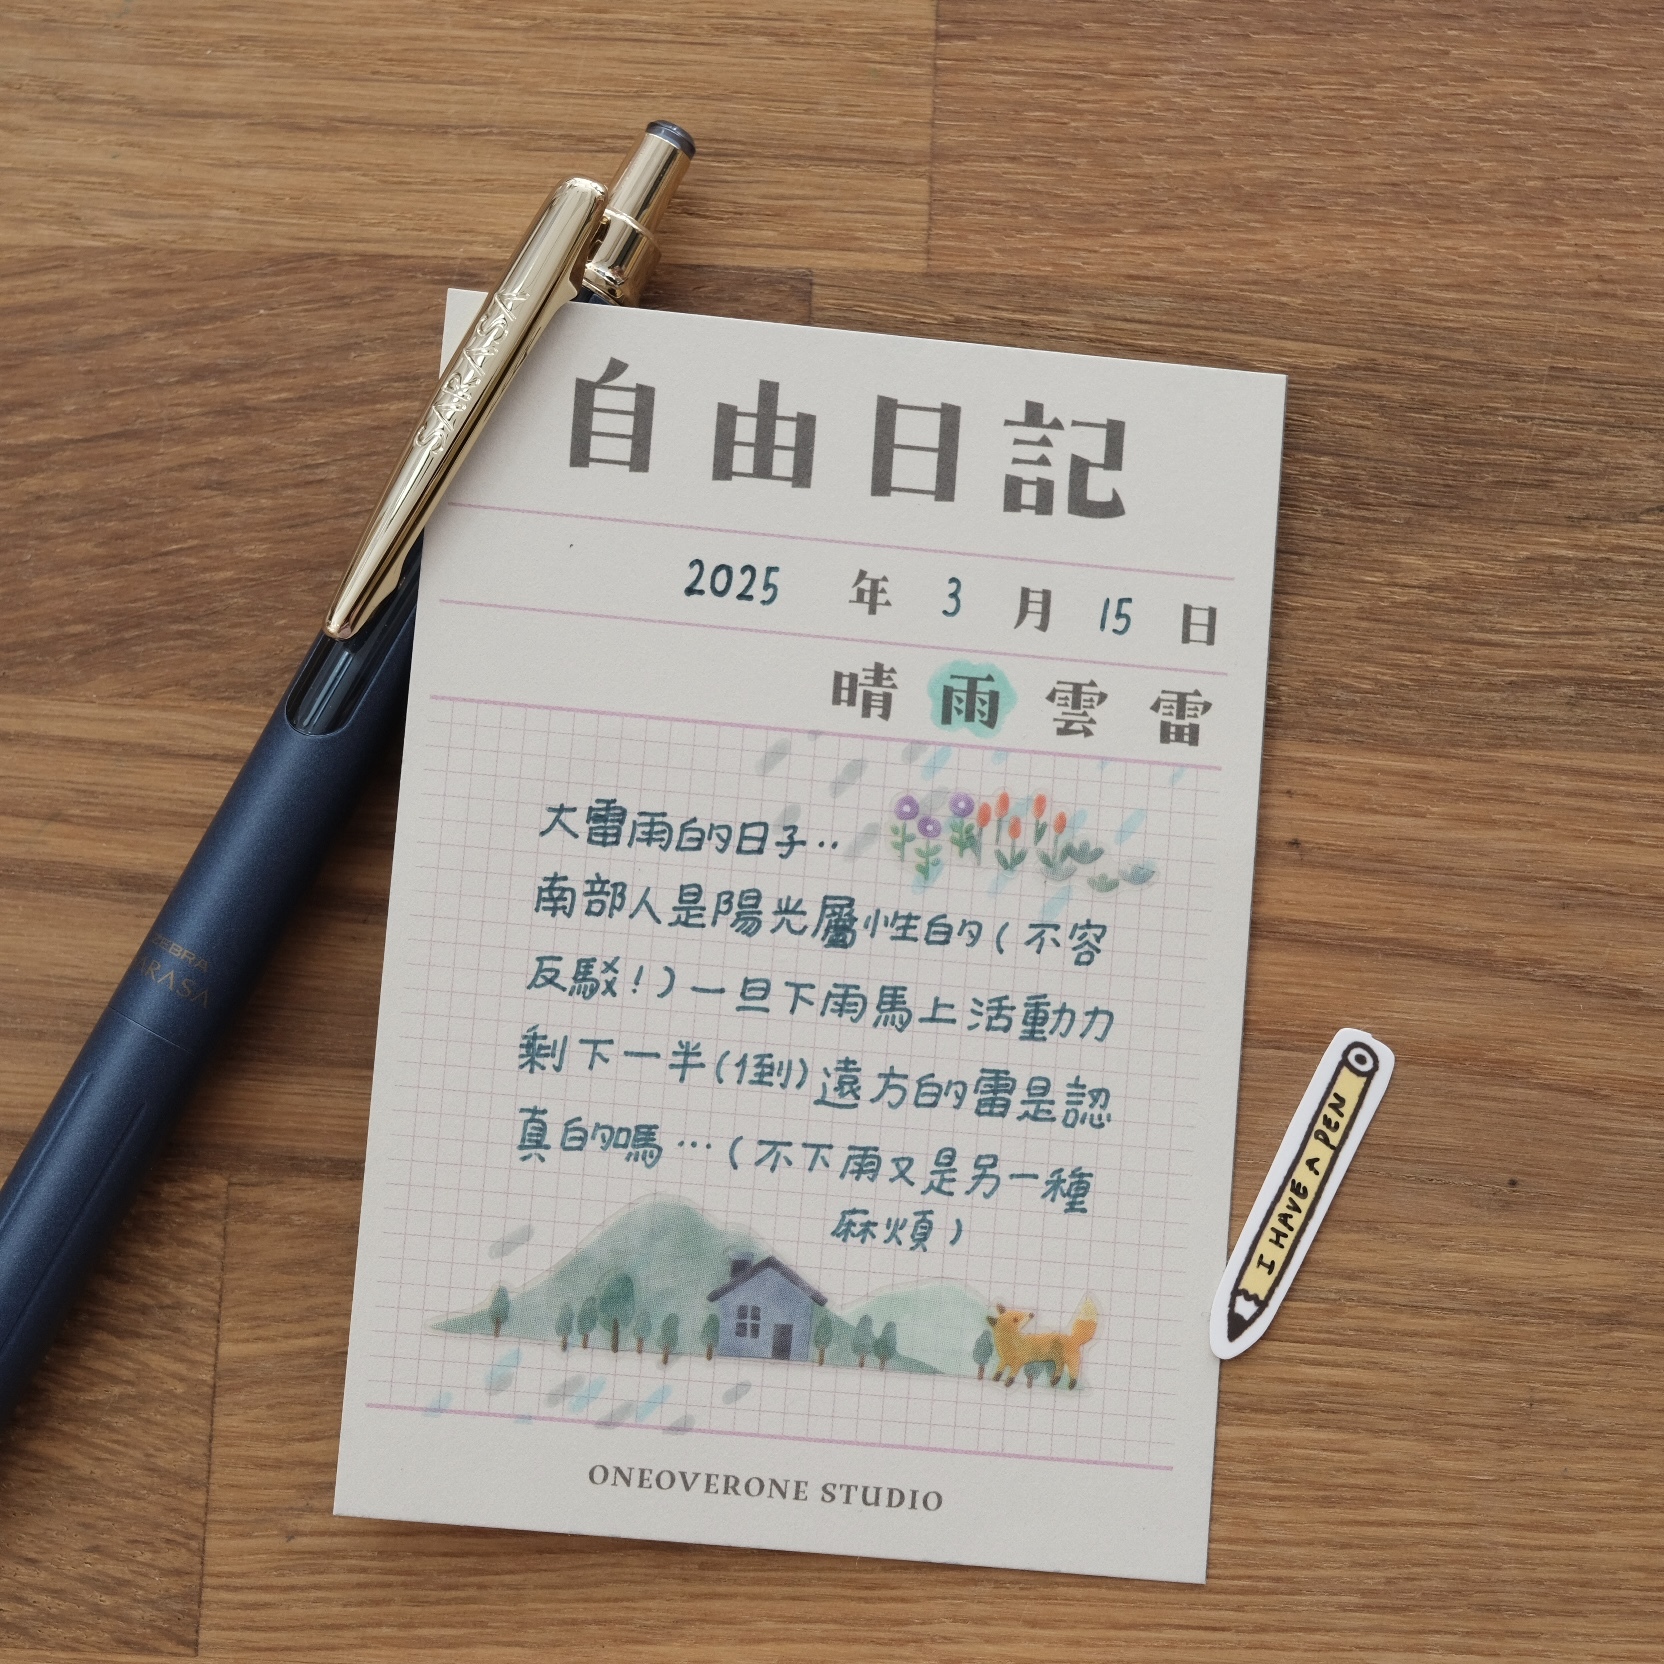 SARASA
自由日記
2025 年 3 月 15 日
晴 雨 雲 雷
大雷雨的日子..
南部人是陽光屬性的(不容
反駁!)一旦下雨馬上活動力
剩下一半(倒)遠方的雷是認
真的嗎…(不下雨又是另一種
麻煩)
ONEOVERONE STUDIO
ZEBRA
SARASA
I HAVE A PEN